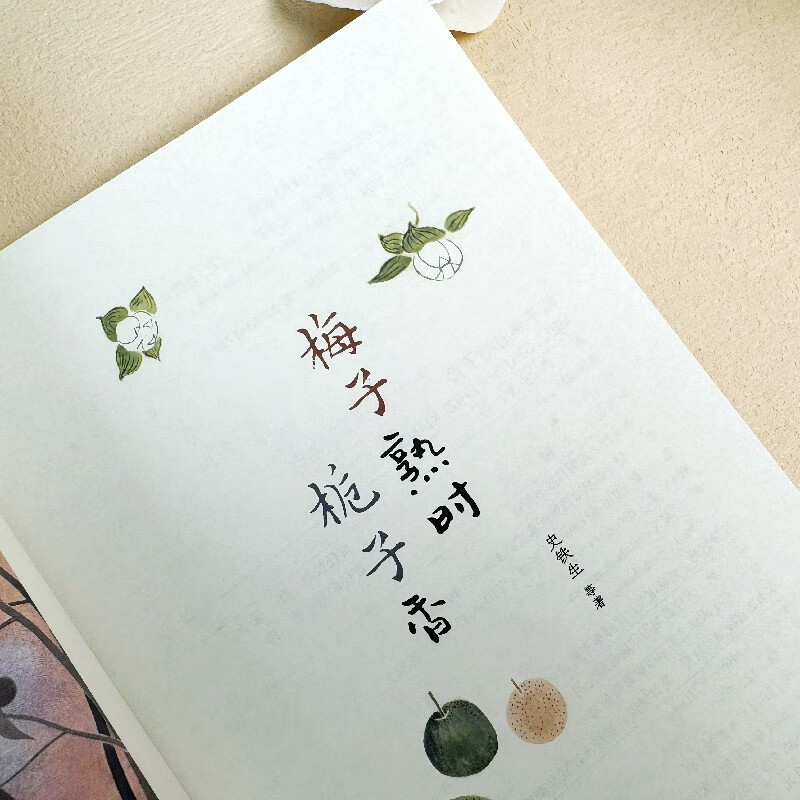 梅子熟时
栀子香
史铁生 等著